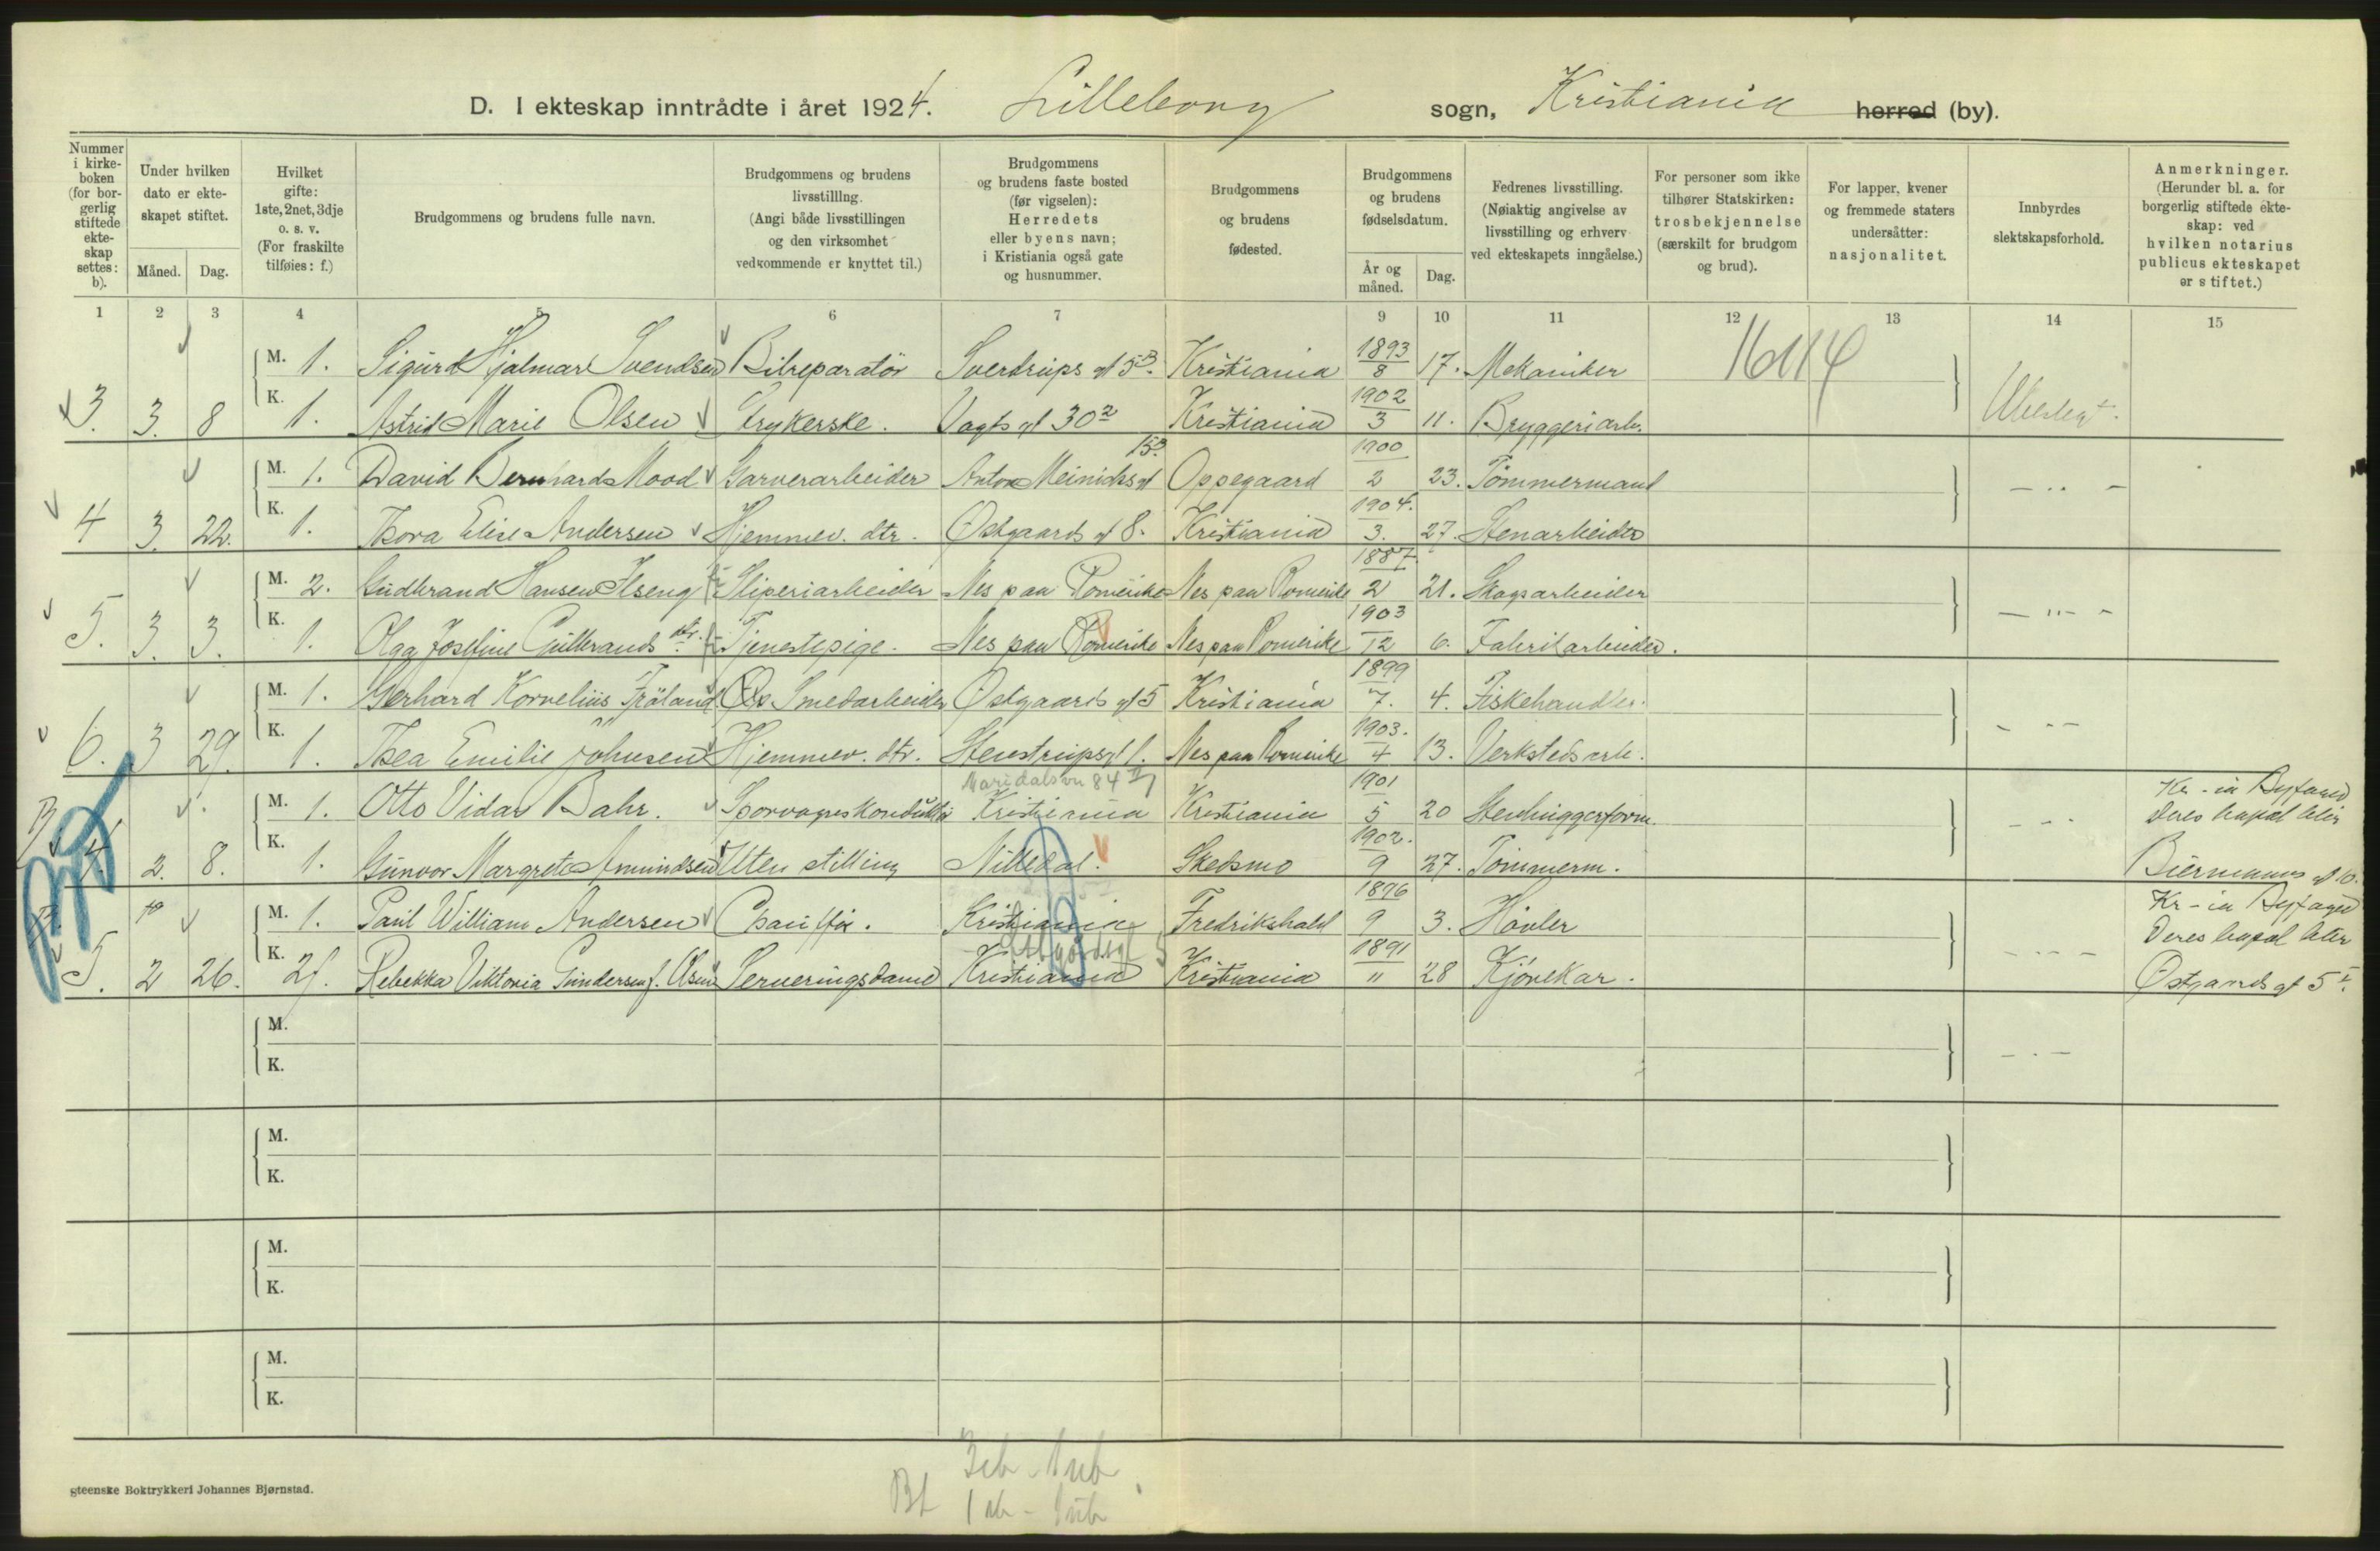 D. I ekteskap inntrådte i året 1924. Lilleborg sogn, Kristiania herred (by).
Nummer i kirkeboken (for borgerlig stiftede ekteskap settes: b).
Under hvilken dato er ekteskapet stiftet.
Måned. Dag.
Hvilket gifte: 1ste, 2net, 3dje o. s. v. (For fraskilte tilføies: f.)
Brudgommens og brudens fulle navn.
Brudgommens og brudens livsstilling. (Angi både livsstillingen og den virksomhet vedkommende er knyttet til.)
Brudgommens og brudens faste bosted (før vigselen): Herredets eller byens navn; i Kristiania også gate og husnummer.
Brudgommens og brudens fødested.
Brudgommens og brudens fødselsdatum.
År og måned. Dag.
Fedrenes livsstilling. (Nøiaktig angivelse av livsstilling og erhverv ved ekteskapets inngåelse.)
For personer som ikke tilhører Statskirken: trosbekjennelse (særskilt for brudgom og brud).
For lapper, kvener og fremmede staters undersåtter: nasjonalitet.
Innbyrdes slektskapsforhold.
Anmerkninger. (Herunder bl. a. for borgerlig stiftede ekteskap: ved hvilken notarius publicus ekteskapet er stiftet.)
1 2 3 4 5 6 7 9 10 11 12 13 14 15
M. 1. Sigurd Hjalmar Svendsen Bilreparatör Sverdrups gt 5 Kristiania 1893 8 17. Mekaniker
3. 3. 8 K. 1. Astrid Marie Olsen Strykerske. Vogts gt 30 2 Kristiania 1902 3 11. Bryggeriarb.
M. 1. David Bernhard Mood Garverarbeider Anton Meinichs gt 15 Oppegaard 1900 2 23. Tömmermand
4 3. 22. K. 1. Thora Elise Andersen Hjemmev. dtr. Östgaards gt 8. Kristiania 1904. 3. 27. Stenarbeider
M. 2. Gudbrand Hansen Ilseng Sliperiarbeider Nes paa Romerike Nes paa Romerike 1887 2 21. Skogsarbeider
5. 3. 3. K. 1. Olga Josefine Gulbrandsdtr. Tjenestepige. Nes paa Romerike Nes paa Romerike 1903 12 6. Fabrikarbeider.
M. 1. Gerhard Kornelius Fröland Smedarbeider Östgaards gt 5 Kristiania 1899 7. 4. Fiskehandler.
6. 3 29. K. 1. Thea Emilie Johnsen Hjemmev. dtr. Stenstrups gt 1. Nes paa Romerike 1903. 4 13. Verkstedsarb.
Maridalsvn 84 II
M. 1. Otto Vidar Bahr. Sporvogns Konduktör Kristiania Kristiania 1901 5 20 Stenhuggerform. Kr-ia Byfoged
Deres bopæl blir
4. 2. 8. K. 1. Gunvor Margrete Amundsen Uten stilling Nittedal. Skedsmo 1902. 9 27. Tömmerm. Biermanns gt 10.
M. 1. Paul William Andersen Chaufför. Kristiania Fredrikshald 1896 9 3. Hövler Kr-ia Byfoged
Deres bopæl blir
5. 2 26. K. 2f. Rebekka Viktoria Gundersen f. Olsen Serveringsdame Kristiania Kristiania 1891 11 28 Kjörekar. Östgaards gt 5
M.
K.
M.
K.
M.
K.
M.
K.
Steenske Boktrykkeri Johannes Bjørnstad.